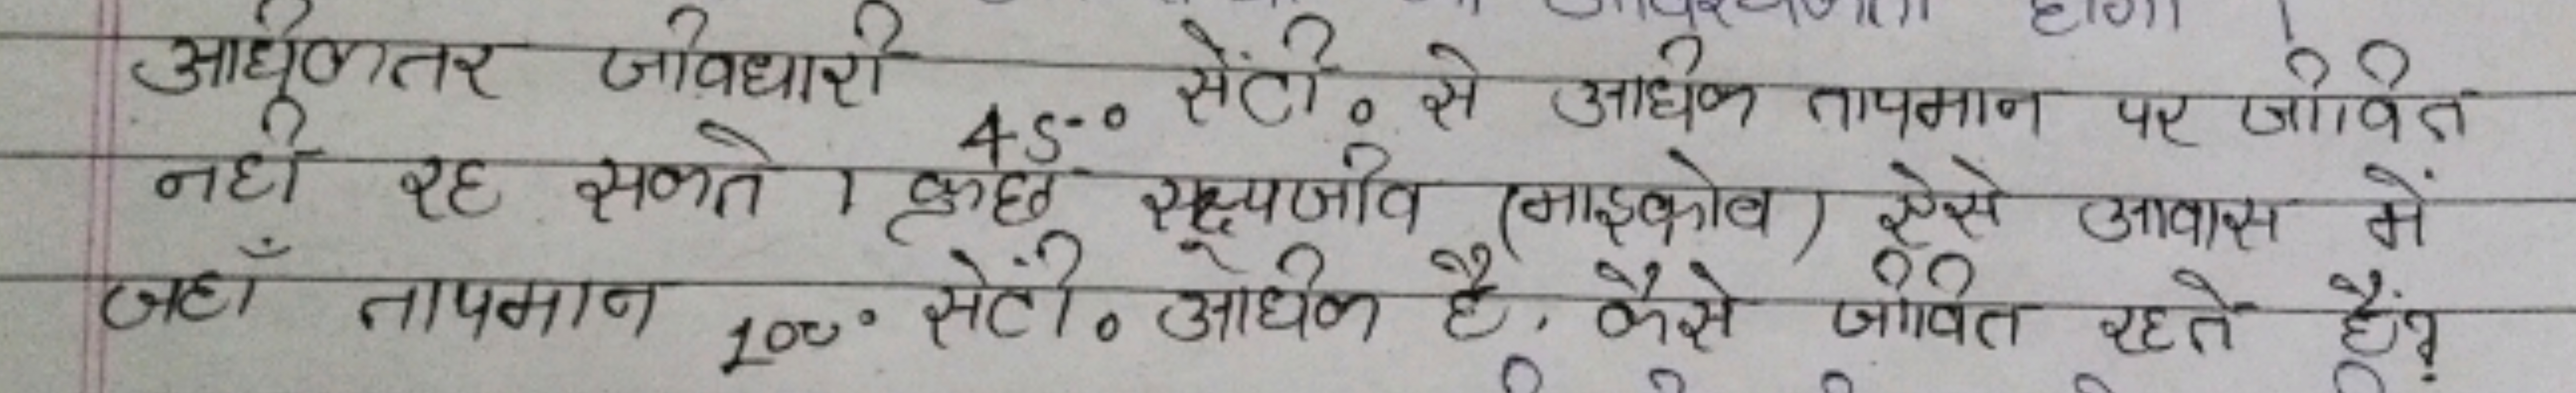 अधिकतर जीवधारी 45° सेंटी० से अधिक तापमान पर जीवित
नहीं रह सकते । कुछ सूक्ष्मजीव (माइक्रोव) ऐसे आवास में
जहाँ तापमान 100° सेंटी० अधिक है, कैसे जीवित रहते हैं?